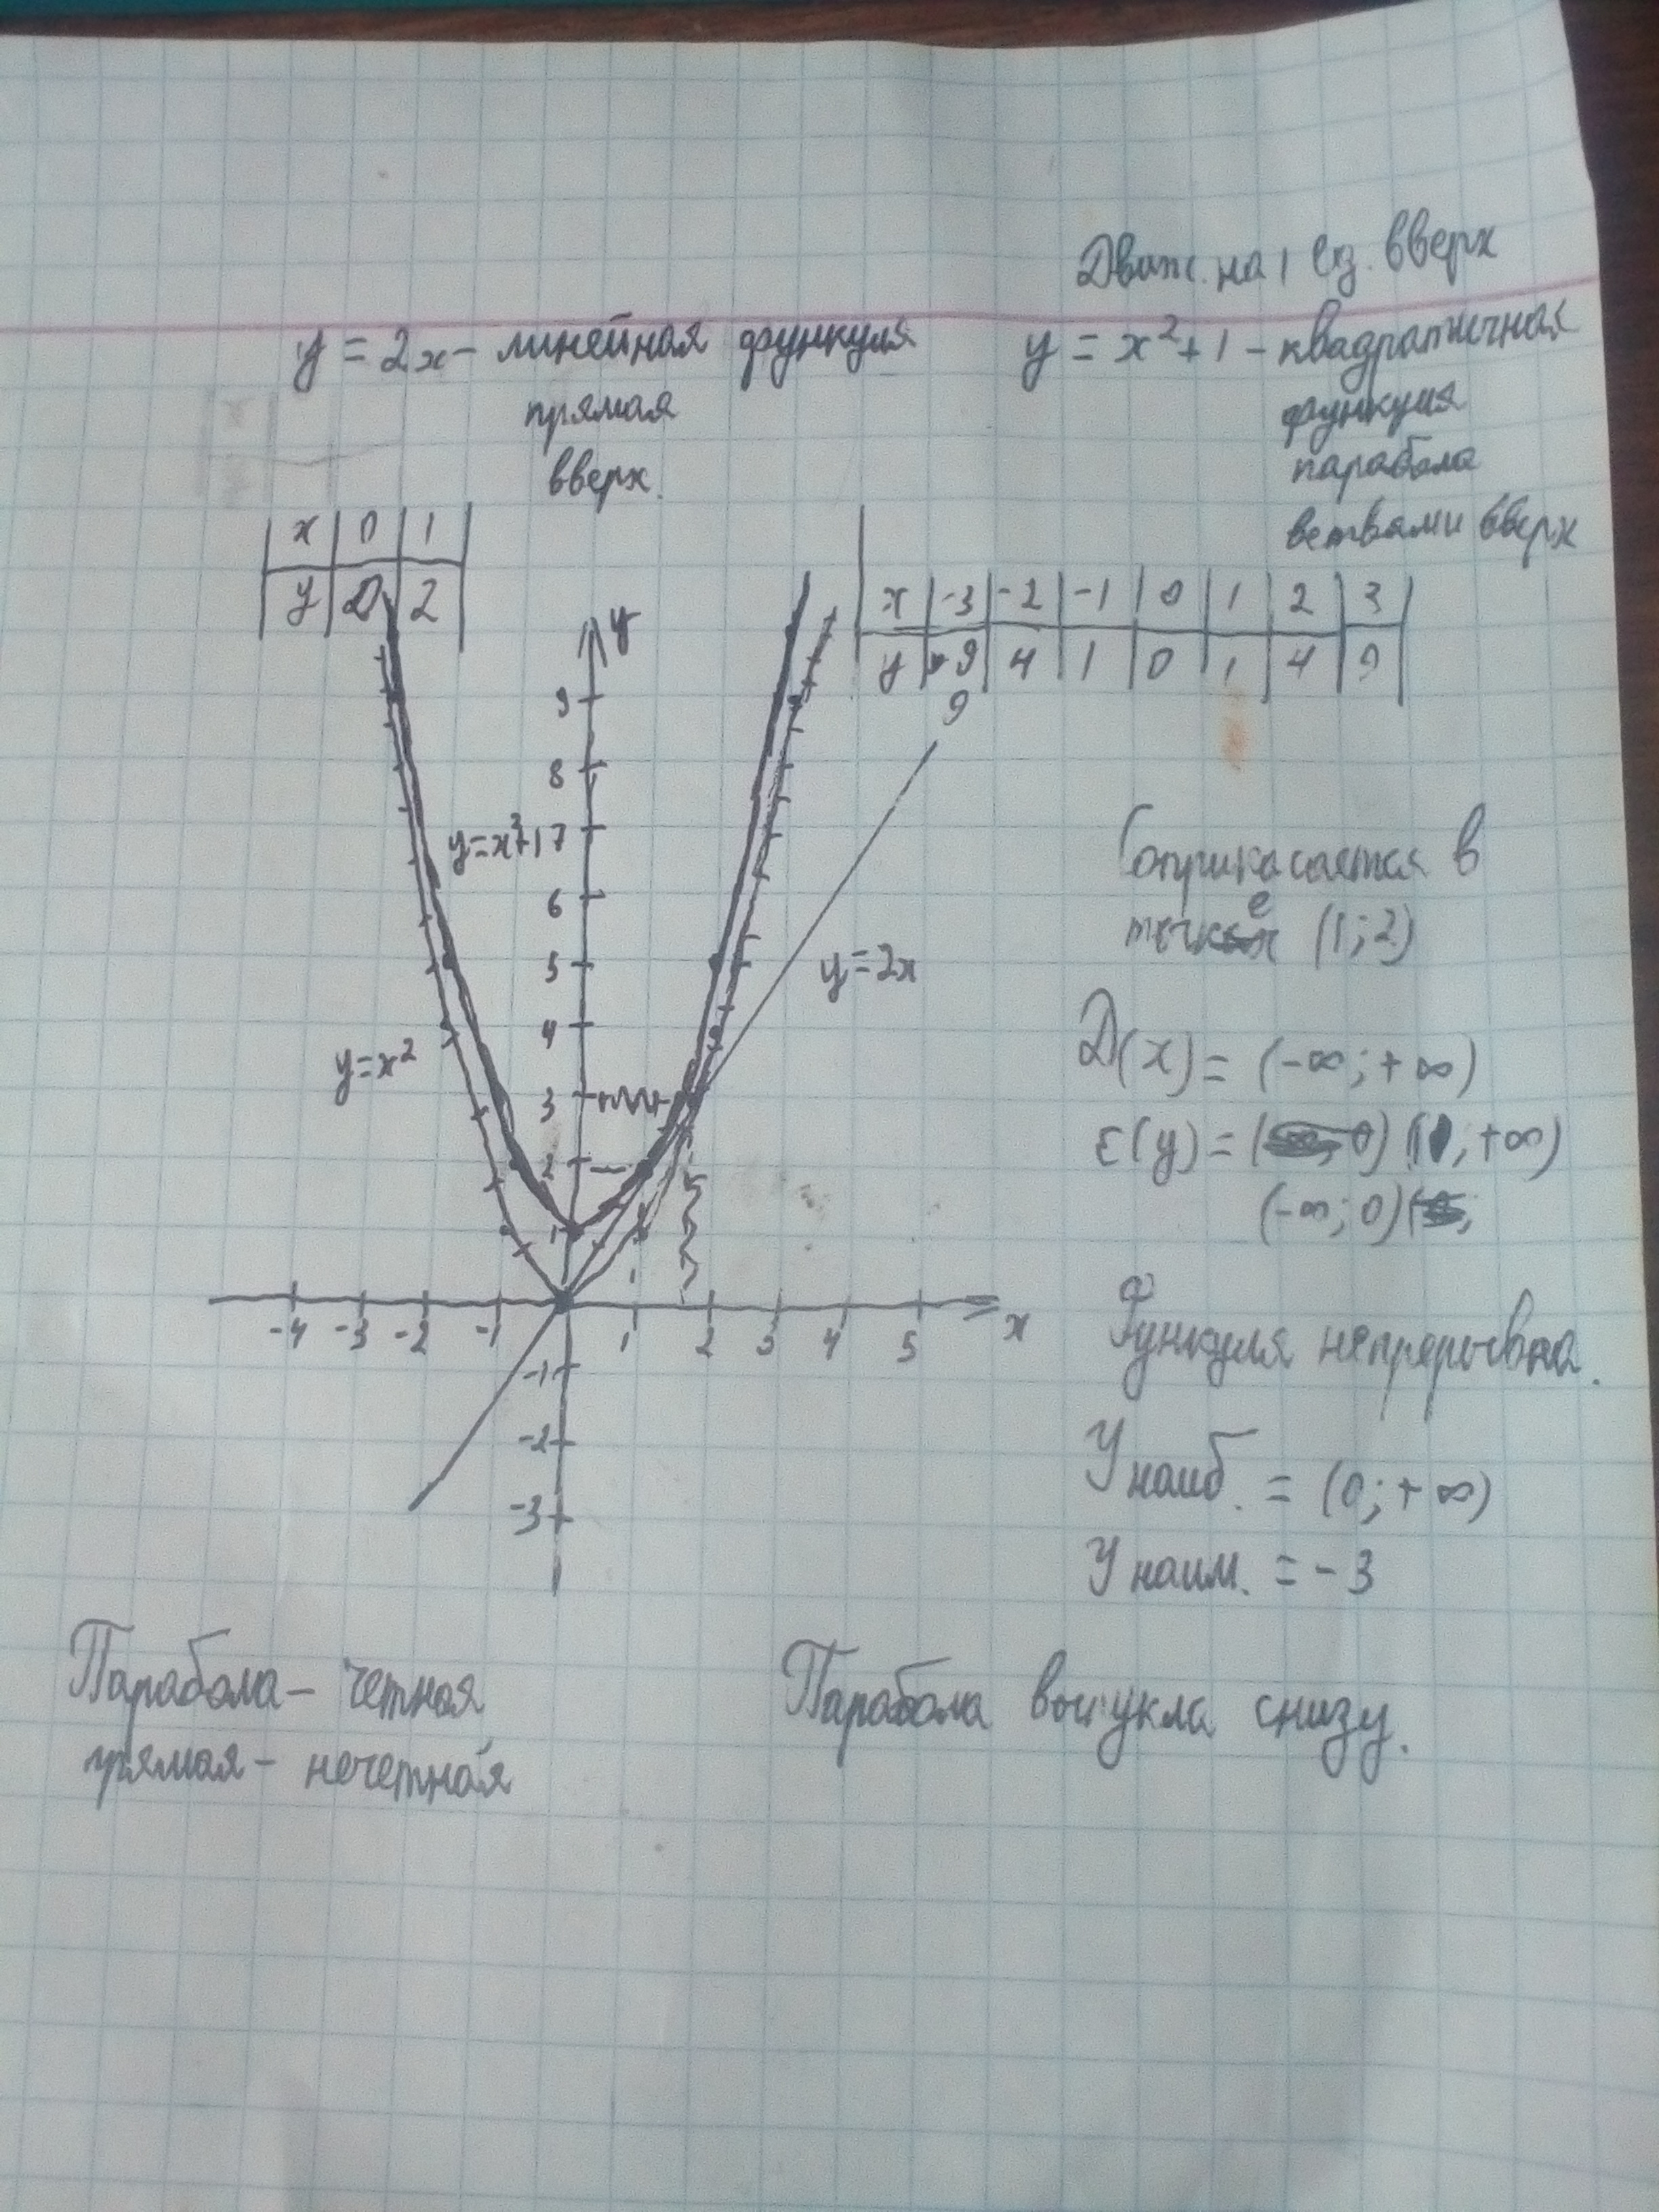 Движ. на 1 ед. вверх
y = 2x - линейная функция
прямая
вверх.
y = x²+1 - квадратичная
функция
парабола
ветвями вверх
x 0 1
y 0 2
x -3 -2 -1 0 1 2 3
y 9 4 1 0 1 4 9
9
y
9
8
y=x²+1 7
6
5
4
3
2
1
y=x²
y=2x
-4 -3 -2 -1 1 2 3 4 5 x
1
-1
-2
-3
Соприкасается в
точке (1;2)
D(x) = (-∞;+∞)
E(y) = (1, +∞)
(-∞; 0)
Функция непрерывна.
У наиб. = (0;+∞)
У наим. = -3
Парабола - четная
прямая - нечетная
Парабола выпукла снизу.